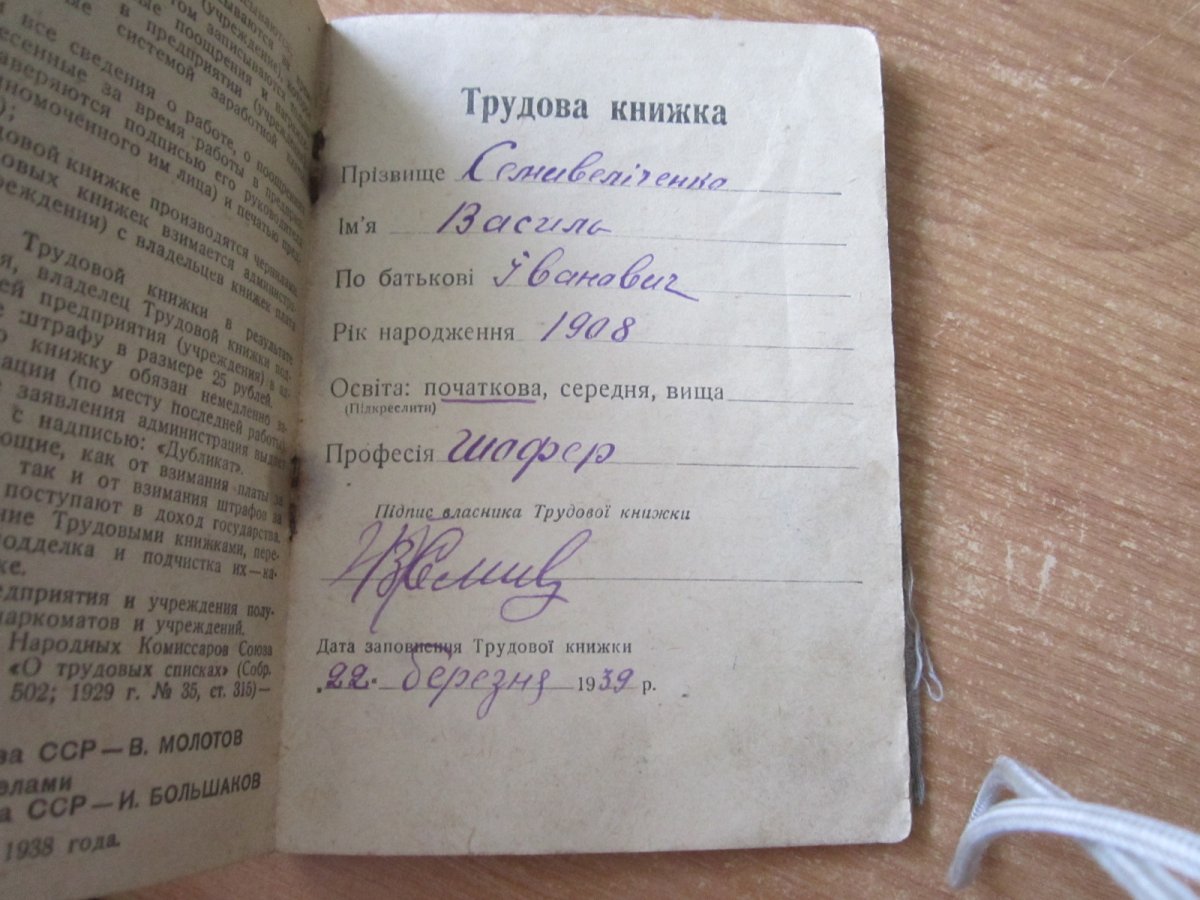 сываются
(учреждение), которые
том записываются
ные поощрения и награжде-
в предприятии (учреждении)
системой заработной платы
все сведения о работе, о поощрениях
несенные за время работы в предприя-
заверяются подписью его руководителя
лномоченного им лица) и печатью пред-
);
довой книжке производятся чернилами.
довых книжек взимается администра-
реждения) с владельцев книжек плата
Трудовой книжки в результате
я, владелец Трудовой книжки под-
ей предприятия (учреждения) в
е штрафу в размере 25 рублей.
ю книжку обязан немедленно за-
рации (по месту последней работы).
заявления администрация выдает
с надписью: «Дубликат».
ающие, как от взимания платы за
так и от взимания штрафов за
поступают в доход государства.
ние Трудовыми книжками, пере-
подделка и подчистка их—ка-
ке.
едприятия и учреждения полу-
наркоматов и учреждений.
Народных Комиссаров Союза
«О трудовых списках» (Собр.
502; 1929 г. № 35, ст. 315)—
ва ССР—В. МОЛОТОВ
елами
а ССР—И. БОЛЬШАКОВ
1938 года.
Трудова книжка
Прізвище Семивеліченко
Ім'я Василь
По батькові Іванавич
Рік народження 1908
Освіта: початкова, середня, вища
(Підкреслити)
Професія шофер
Підпис власника Трудової книжки
Дата заповнення Трудової книжки
22 березня 1939 р.